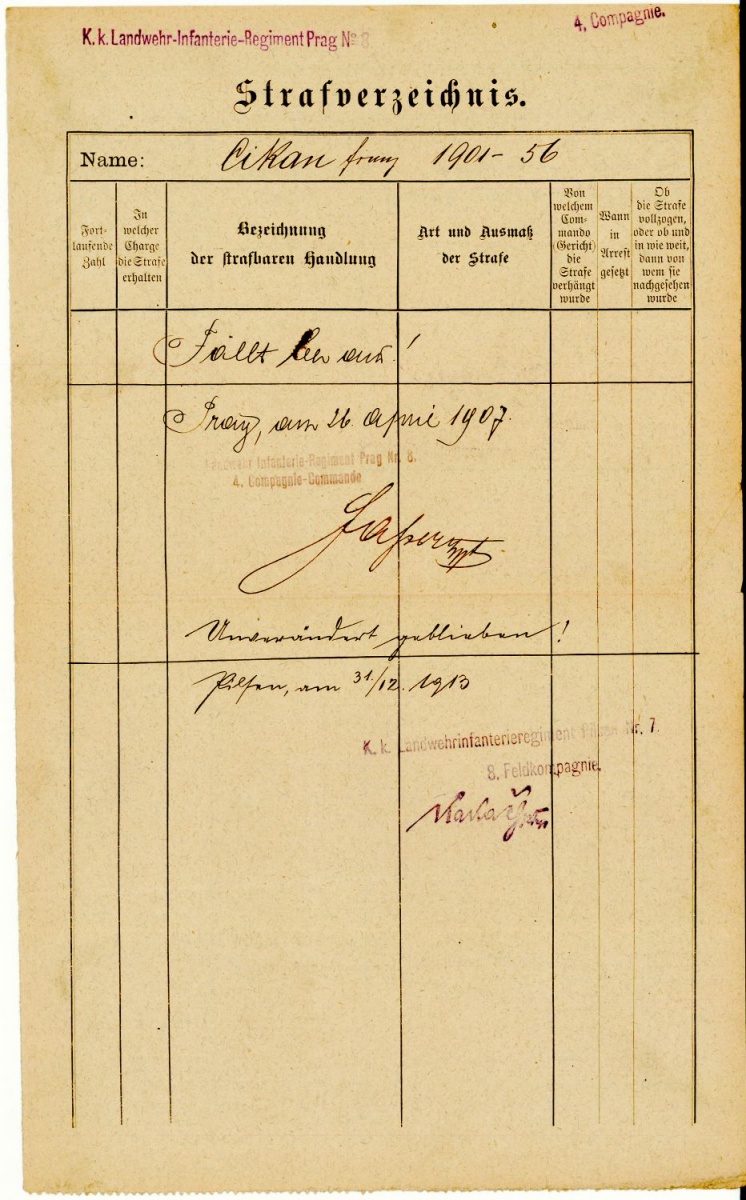 K. k. Landwehr-Infanterie-Regiment Prag No 8
4. Compagnie.
Strafverzeichnis.
Name: Cikan Franz 1901 - 56
Fort-
laufende
Zahl
In
welcher
Charge
die Strafe
erhalten
Bezeichnung
der strafbaren Handlung
Art und Ausmaß
der Strafe
Von
welchem
Com-
mando
(Gericht)
die
Strafe
verhängt
wurde
Wann
in
Arrest
gesetzt
Ob
die Strafe
vollzogen,
oder ob und
in wie weit,
dann von
wem sie
nachgesehen
wurde
Fällt leer aus!
Prag, am 26. April 1907.
Landwehr Infanterie-Regiment Prag Nr. 8.
4. Compagnie-Commande
Unverändert geblieben!
Pilsen, am 31./12. 1913
K. k. Landwehrinfanterieregiment Pilsen Nr. 7.
8. Feldkompagnie.